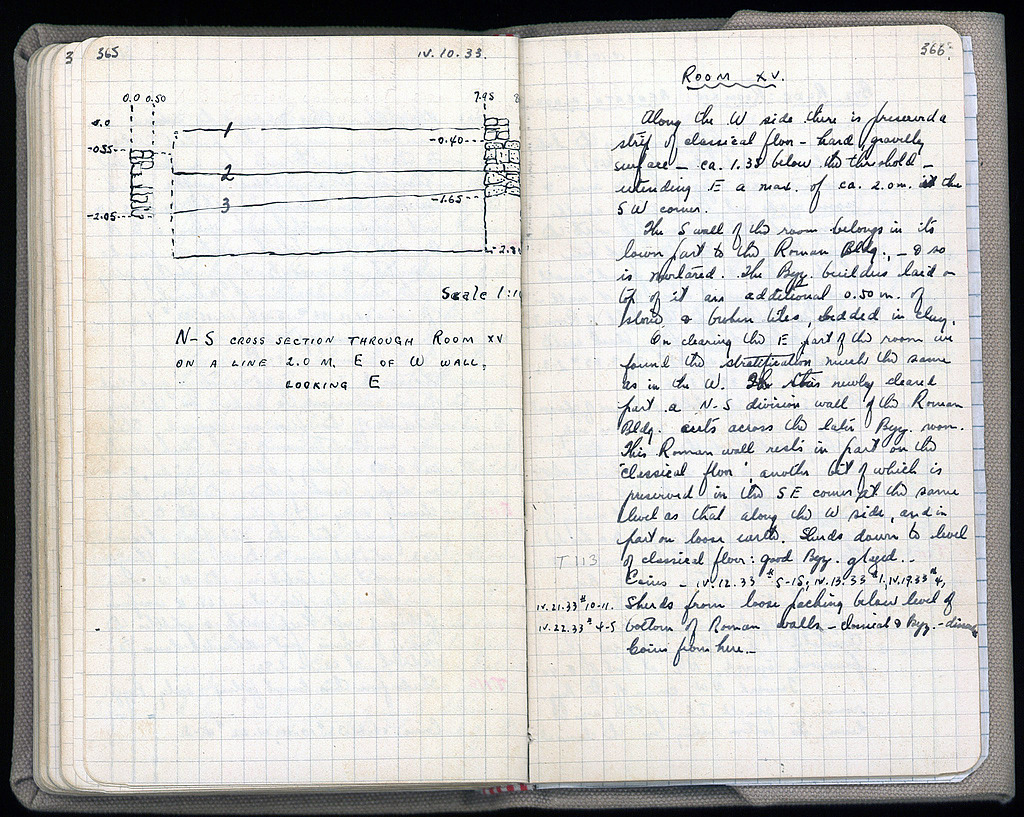 3
365
IV.10.33.
0.0 0.50
7.95 8
±.0
1
-0.40
-0.55
2
3
-1.65
-2.05
-2.8
Scale 1:1
N-S CROSS SECTION THROUGH ROOM XV
ON A LINE 2.0 M. E OF W WALL,
LOOKING E
366
ROOM XV.
Along the W side there is preserved a
strip of classical floor - hard, gravelly
surface - ca. 1.35 below the threshold -
extending E a max. of ca. 2.0 m. at the
SW corner.
The S wall of the room belongs in its
lower part to the Roman Bldg., - & so
is mortared. The Byz. builders laid on
top of it an additional 0.50 m. of
stones & broken tiles, bedded in clay.
On clearing the E part of the room we
found the stratification much the same
as in the W. In this newly cleared
part a N-S division wall of the Roman
Bldg. cuts across the later Byz. room.
This Roman wall rests in part on the
"classical floor", another bit of which is
preserved in the SE corner at the same
level as that along the W side, and in
part on loose earth. Sherds down to level
T 113 of classical floor: good Byz. glazed..
Coins - IV.12.33 #5-15; IV.13.33 #1; IV.19.33 #4,
IV.21.33 #10-11. Sherds from loose packing below level of
IV.22.33 #4-5 bottom of Roman walls - classical & Byz. -
Coins from here.-